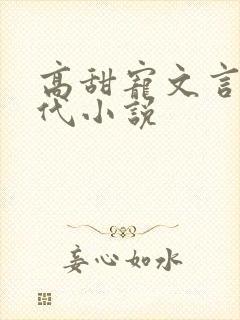 高甜宠文言
代小说
妄心如水